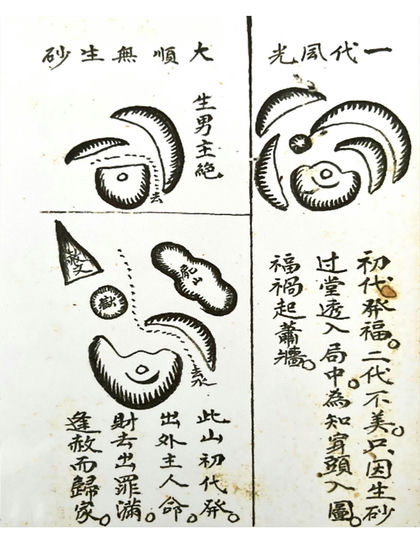 一代風光
初代發福。二代不美。只因生砂
过堂透入局中。為知穿頭入圖。
福禍起蕭牆。
大順無生砂
生男主絕
去
赦文
獄
山
去水
此山初代發。
出外主人命。
財去出罪滿。
逢赦而歸家。